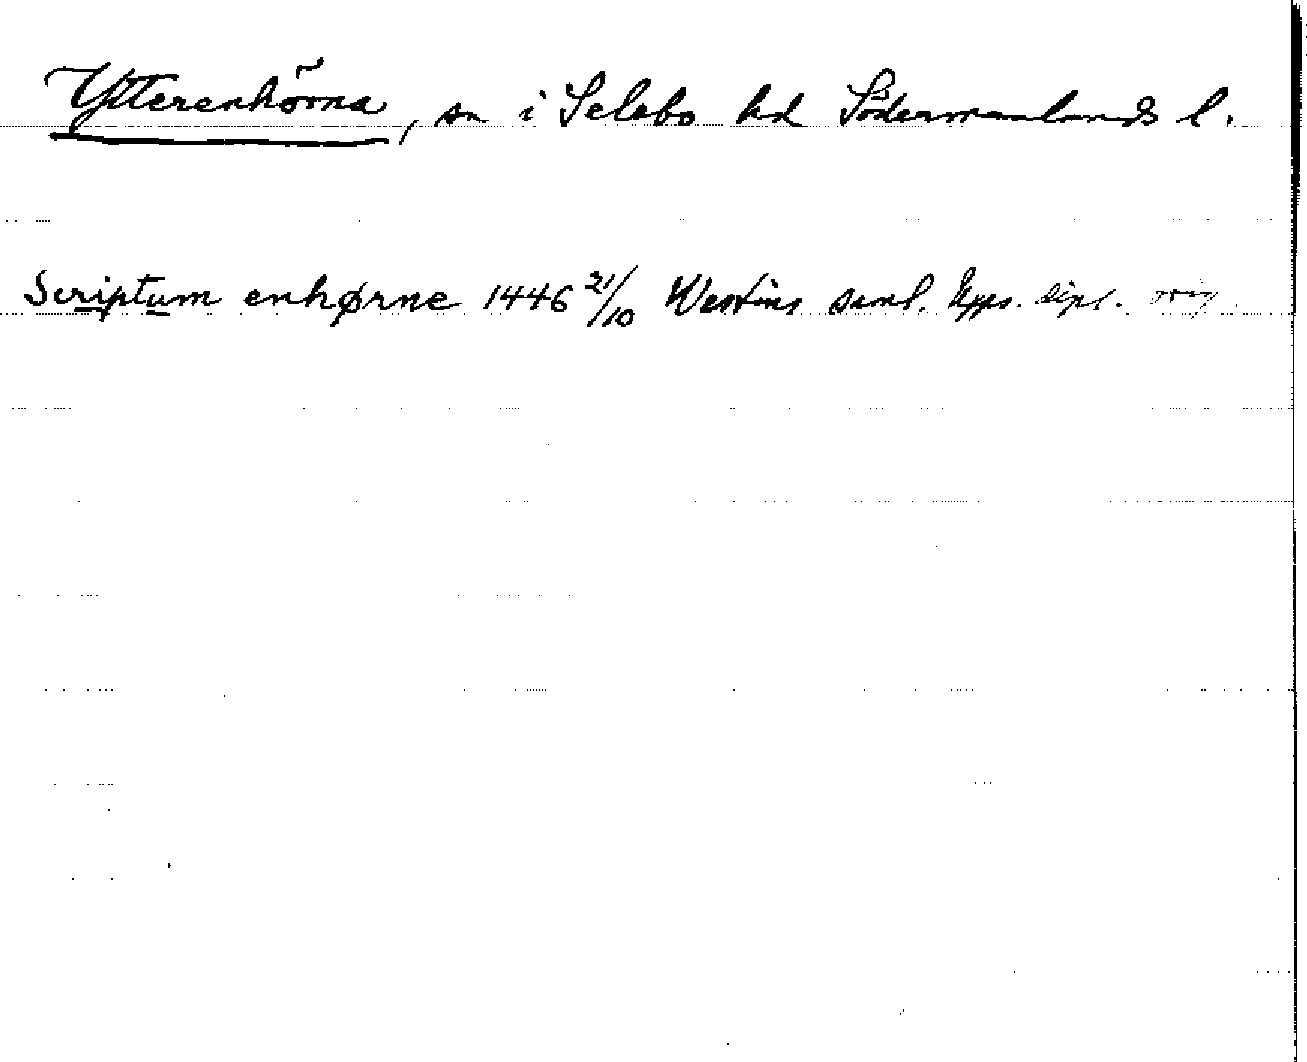 Ytterenhörna, sn i Selebo hd Södermanlands l.
Scriptum enhørne 1446 21/10 Westins saml. Upps. dipl. orig.